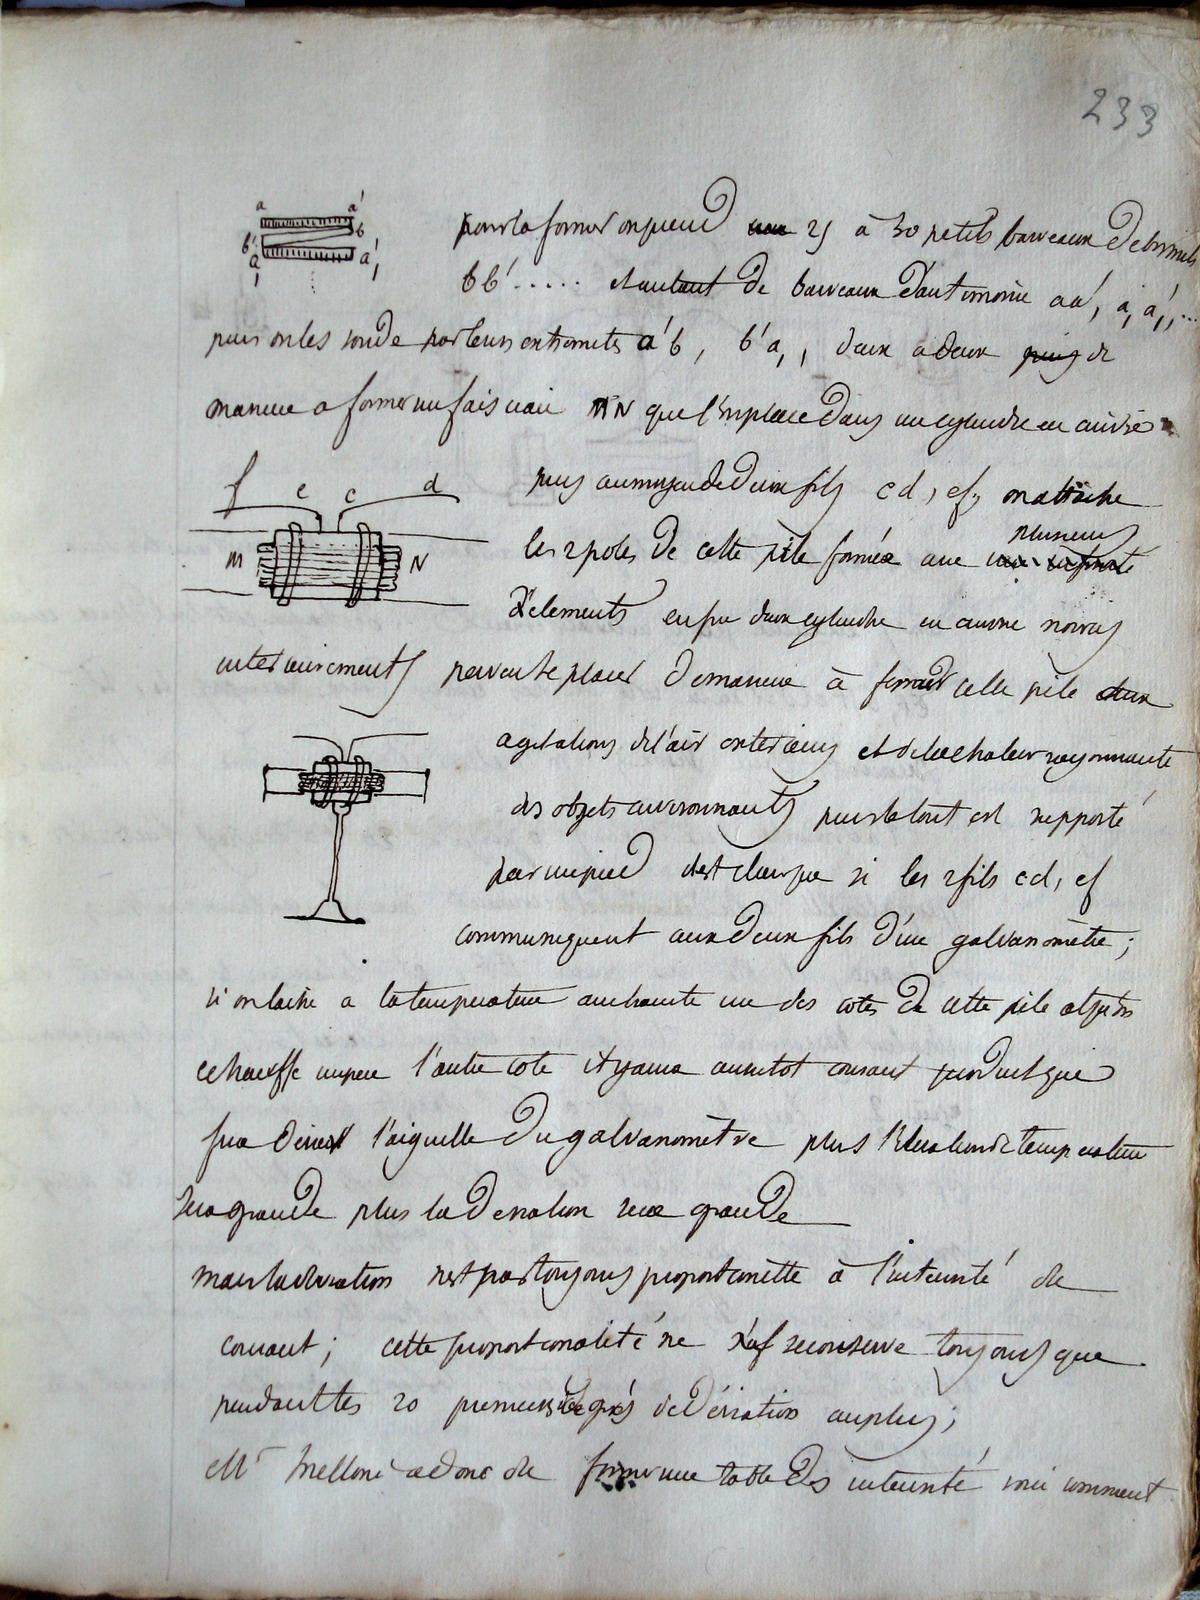 233
a a'
b' b
a, a',
pour la former on prend 25 à 30 petits barreaux de bismuth
bb'..... et autant de barreaux d'antimoine aa', a, a',, ...
puis on les soude par leurs extremités a'b, b'a,, deux a deux de
maniere a former un faisceau MN que l'on place dans un cylindre en cuivre
f e c d
M N
puis au moyen de deux fils cd, ef, on attache
les 2 poles de cette pile formée avec plusieurs
d'elements enfin deux cylindre en cuivre noircis
interieurements peuvent se placer de maniere à fermer cette pile aux
agitations de l'air exterieurs et de la chaleur rayonnante
des objets environnants puis le tout est supporté
par un pied il est clair que si les 2 fils cd, ef
communiquent aux deux fils d'un galvanomètre;
si on laisse a la temperature ambiante un des cotés de cette pile et qu'on
echauffe un peu l'autre coté il y aura aussitot courant produit qui
fera devier l'aiguille du galvanomètre plus l'elevation de temperature
sera grande plus la deviation sera grande
mais la deviation n'est pas toujours proportionelle à l'intensité du
courant; cette proportionalité ne se conserve toujours que
pendant les 20 premiers degrés de déviation au plus;
Mr Melloni a donc du former une table des intensité voici comment